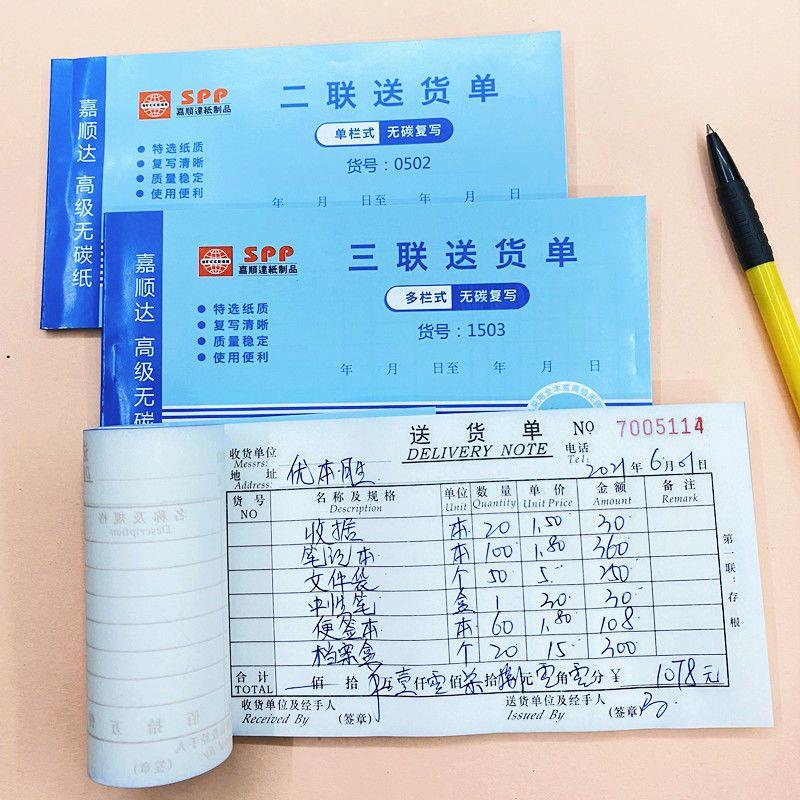 嘉顺达 高级无碳纸
SUCCESS
SPP
嘉順達紙制品
二联送货单
单栏式 无碳复写
货号:0502
特选纸质
复写清晰
质量稳定
使用便利
年 月 日至 年 月 日
嘉顺达 高级无碳
SUCCESS
SPP
嘉順達紙制品
三联送货单
多栏式 无碳复写
货号:1503
特选纸质
复写清晰
质量稳定
使用便利
年 月 日至 年 月 日
送货单 NO 7005114
DELIVERY NOTE
收货单位 电话
Messrs: Tel:
地址 优本胜 2021年6月01日
Address:
货号 名称及规格 单位 数量 单价 金额 备注
NO Description Unit Quantity Unit Price Amount Remark
收据 本 20 1.50 30
笔记本 本 100 1.80 360
文件袋 个 50 5 250
中性笔 盒 1 30 30
便签本 本 60 1.80 108
档案盒 个 20 15 300
第一联:存根
合计 佰 拾 万壹仟零佰柒拾捌元零角零分 ¥ 1078元
TOTAL
收货单位及经手人 送货单位及经手人
Received By (签章) Issued By (签章)